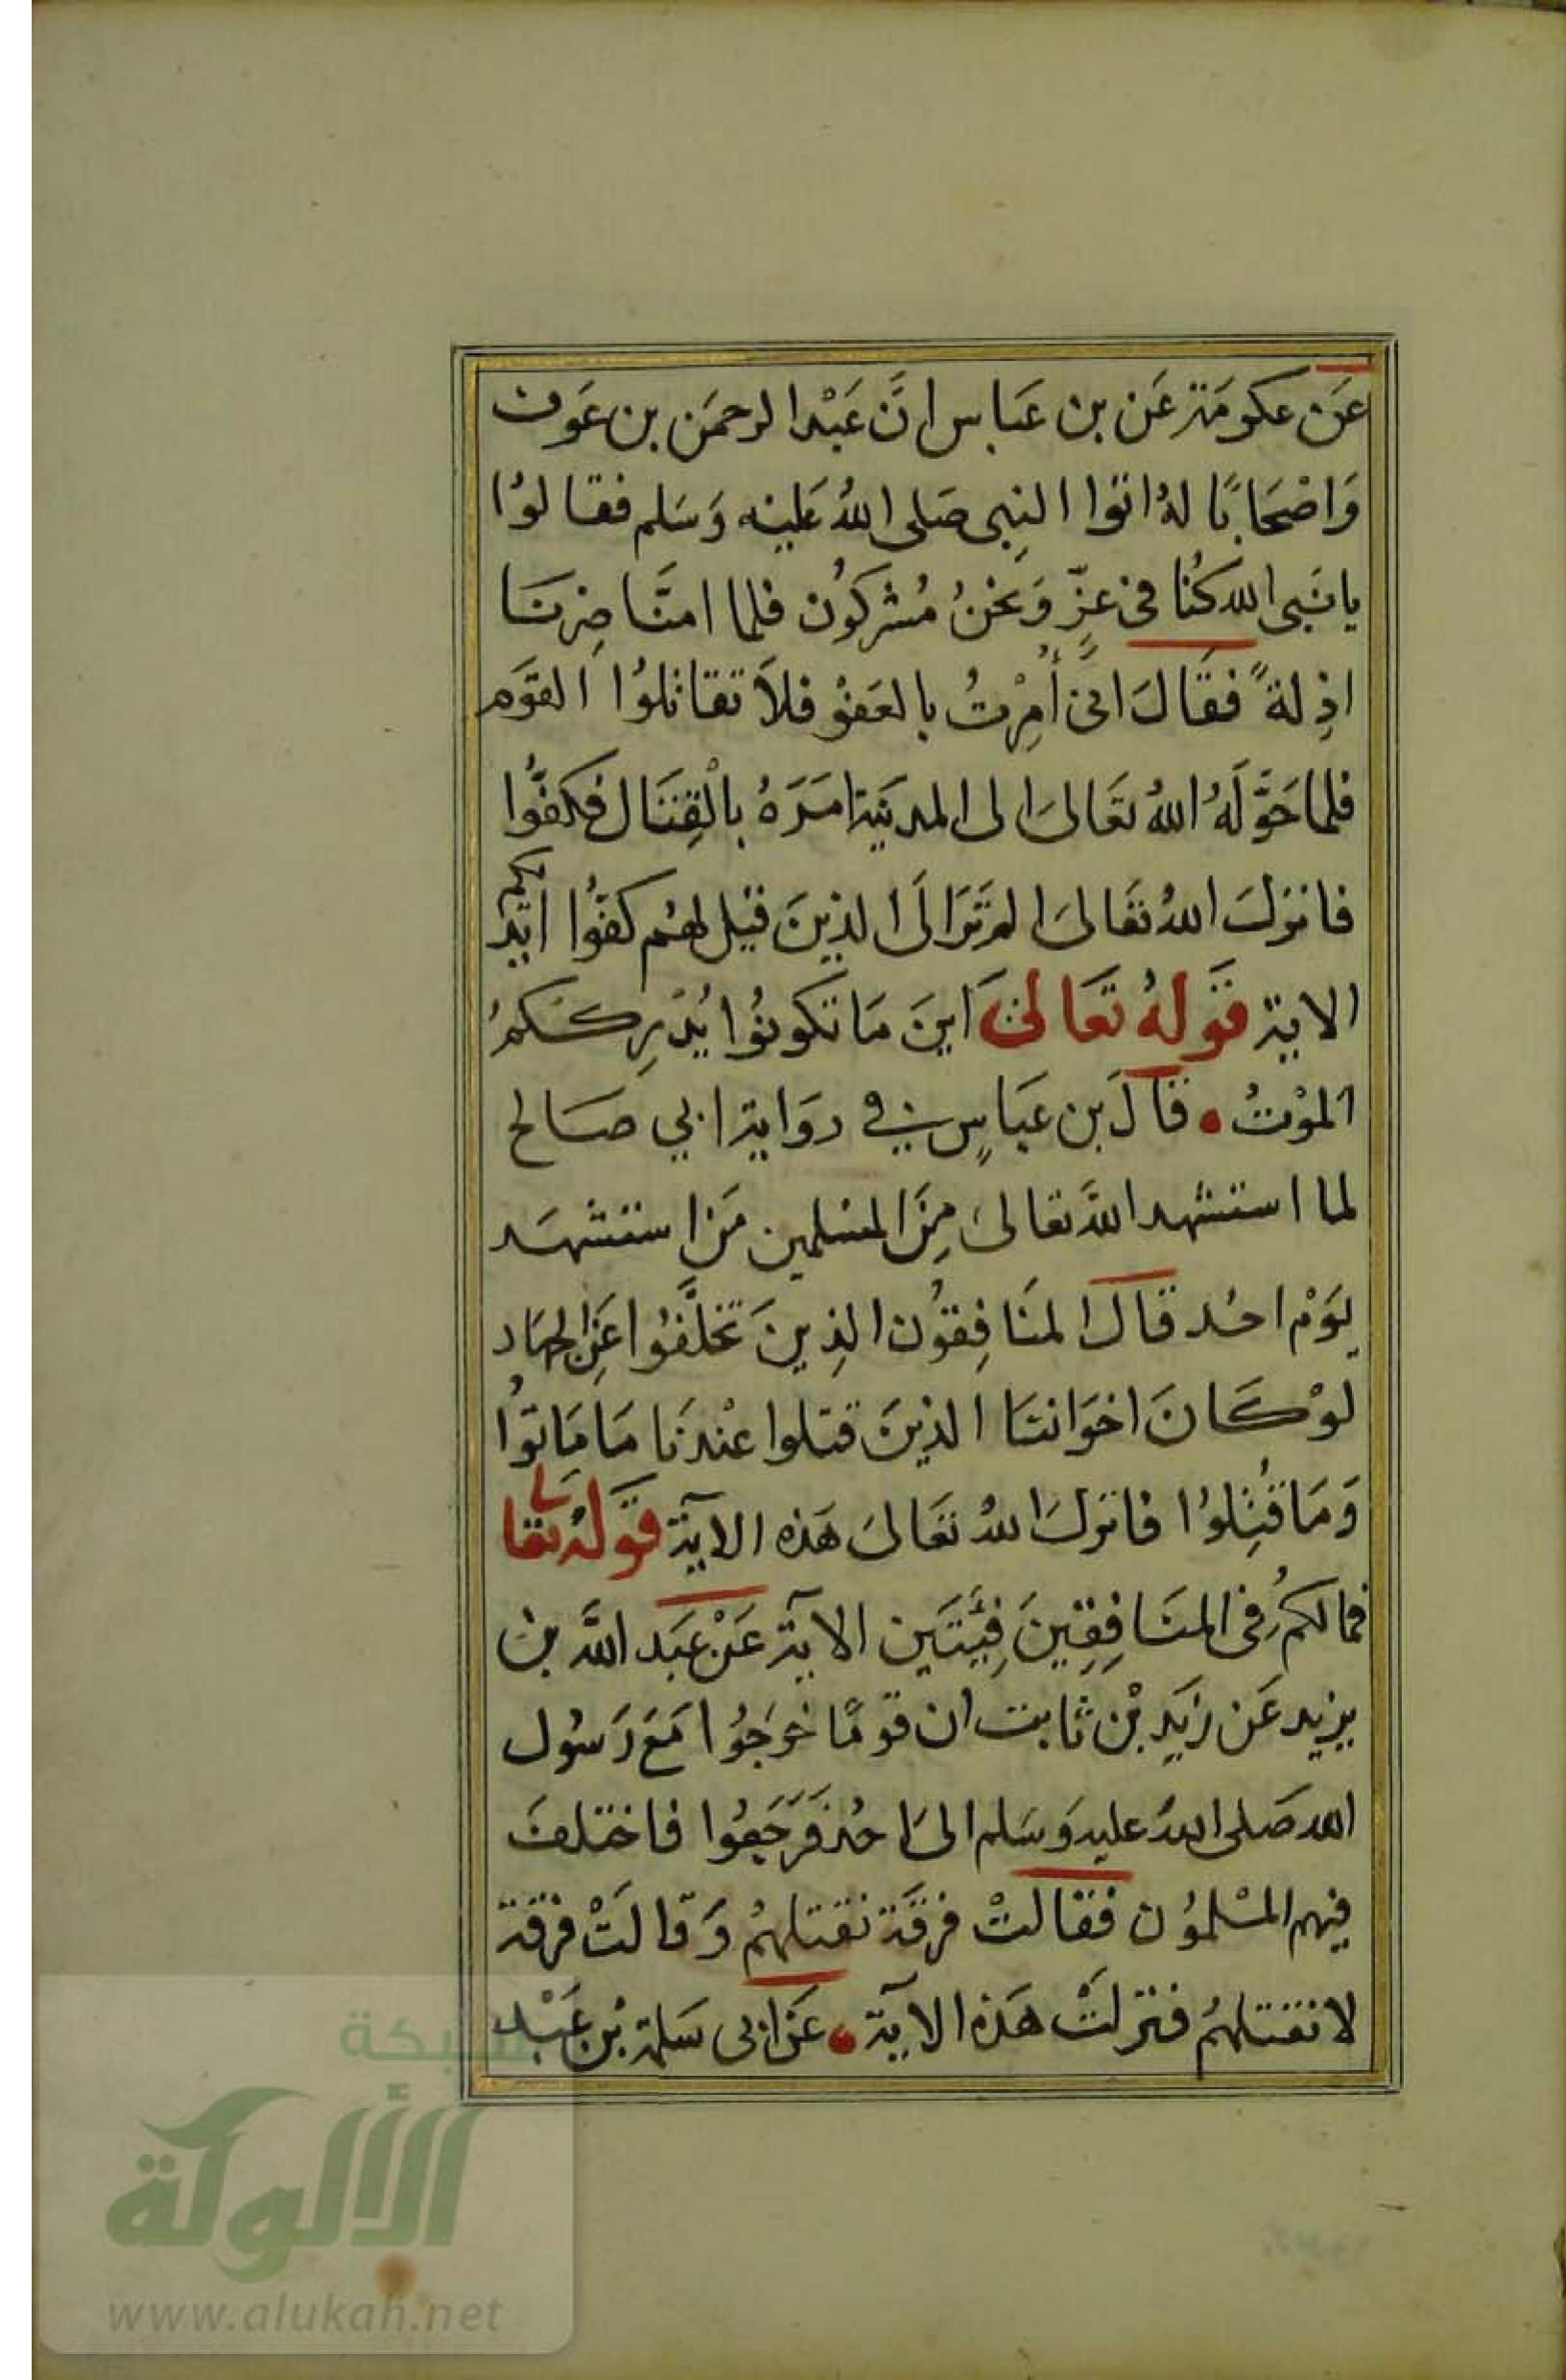 عَن عكومَة عَن بن عَباس انَّ عَبْد الرحمَن بن عَوف
وَاصْحَابًا لهُ اتوا النبِى صَلى اللهُ عَليْه وَسَلم فقالوُا
يا نبَى الله كُنا فى عِزٍّ وَنحْنُ مُشركوُن فلما امنَّا صِرنَا
اذِلةً فقَالَ انىَّ أُمِرْتُ بالعَفْو فلاَ تقاتلوُا القوَم
فلما حَوَّلَهُ اللهُ تعَالىَ الى المدينَة امَرَهُ بالْقِتَال فكفُّوا
فانزلَ اللهُ تعَالىَ الم تَرَ الىَ الذينَ قيْل لهمُ كفُّوا ايْديكم
الاية قَولهُ تَعَالىَ اينَ مَا تكونوُا يُدْرِككمُ
الموْتُ • قالَ بن عَباسٍ في روَاية ابي صَالح
لما استشهد اللهَ تعالىَ مِنَ المسْلمين مَن استشهَد
يوَمْ احُد قالَ المنَافِقوُن الذِينَ تخَلَّفوُا عَنِ الجهَاد
لوْ كَانَ اخوَاننَا الذينَ قتلوا عنْدنَا مَا مَاتوُا
وَمَا قُتِلوُا فانزلَ اللهُ تعَالىَ هَذه الآية قَولهُ تعالى
فمَا لكمُ فى المنَافِقِينَ فِئَتَين الاية عَنْ عَبَد اللهَّ بن
يزيد عَن زيَدِ بْن ثابت ان قومًا خرَجوُا مَعَ رَسُول
الله صَلى اللهُ عليه وَسَلم الىَ احُد فَرَجَعوُا فاختلفَ
فيهم المسْلموُن فقالتْ فرقَة نقتلهمُ وَقالتْ فرقة
لا نقتلهمُ فنزلتْ هَذه الآية • عَن ابى سَلمة بْن عَبْد
شبكة
الألوكة
www.alukah.net